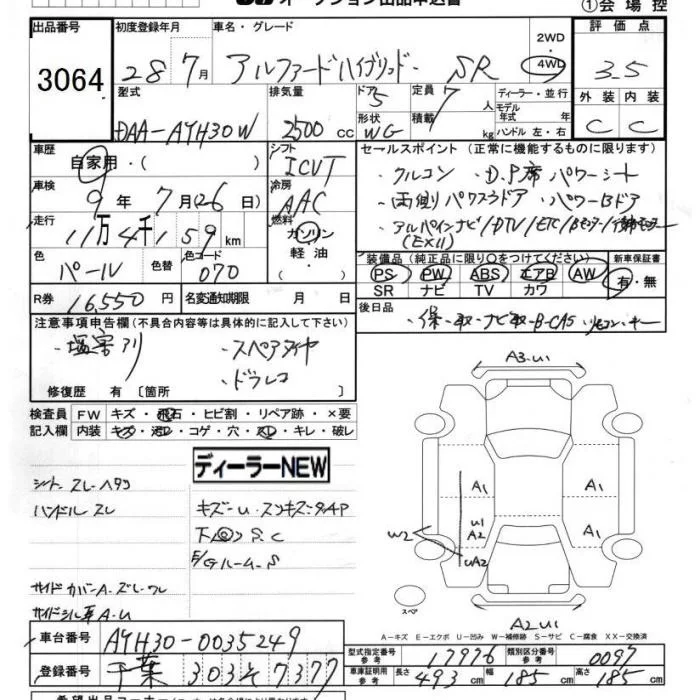 ①会場控
出品番号 3064
初度登録年月 28 7月
車名・グレード アルファードハイブリッド SR
2WD 4WD
評価点 3.5
外装 C 内装 C
型式 DAA-AYH30W
排気量 2500cc
ドア 5 形状 WG
定員 7人 積載 kg
ディーラー・並行
モデル年式 年式
ハンドル 左・右
車歴 自家用・( )
シフト ICVT
セールスポイント(正常に機能するものに限ります)
・クルコン ・D.P席パワーシート
・両側パワスラドア ・パワーBドア
・アルパインナビ/DTV/ETC/Bモニター/
(EX11)
車検 9年7月(26日)
冷房 AAC
走行 11万4千159km
燃料 ガソリン 軽油・
色 パール 色替 色コード 070
装備品(純正品に限り○をつけてください) 新車保証書
PS PW ABS エアB AW 有・無
SR ナビ TV カワ
R券 16,550円
名変通知期限 月 日
後日品 ・保・取・ナビ取・B-CAS・リモコン・キー
注意事項申告欄(不具合内容等は具体的に記入して下さい)
・塩害アリ ・スペアタイヤ
・ドラレコ
修復歴 有〔箇所 〕
検査員 FW キズ・飛石・ヒビ割・リペア跡・×要
記入欄 内装 キズ・汚レ・コゲ・穴・スレ・キレ・破レ
ディーラーNEW
シート スレ・ヘタリ
ハンドル スレ
キズ-U・スリキズ・タッチP
下回りS.C
E/Gルーム-S
サイドカバーA・ズレ・ワレ
サイドシル左A-U
A3.U1
A1 A1
U1
A2
W2
A1
UA2
スペア
A2U1
A-キズ E-エクボ U-凹み W-補修跡 S-サビ C-腐食 XX-交換済
車台番号 AYH30-0035249
登録番号 千葉 303そ7377
型式指定番号 参考 17976 類別区分番号 参考 0097
車庫証明用 参考 長さ 493cm 幅 185cm 高さ 185cm